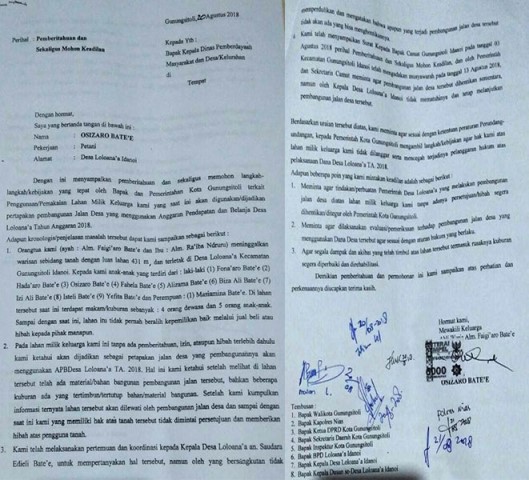 Gunungsitoli, 20 Agustus 2018
Perihal : Pemberitahuan dan
Sekaligus Mohon Keadilan
Kepada Yth :
Bapak Kepala Dinas Pemberdayaan
Masyarakat dan Desa/Kelurahan
di
Tempat
Dengan hormat,
Saya yang bertanda tangan di bawah ini :
Nama : OSIZARO BATE'E
Pekerjaan : Petani
Alamat : Desa Loloana'a Idanoi
Dengan ini menyampaikan pemberitahuan dan sekaligus memohon langkah-
langkah/kebijakan yang tepat oleh Bapak dan Pemerintahan Kota Gunungsitoli terkait
Penggunaan/Pemakaian Lahan Milik Keluarga kami yang saat ini akan digunakan/dijadikan
pertapakan pembangunan Jalan Desa yang menggunakan Anggaran Pendapatan dan Belanja Desa
Loloana'a Tahun Anggaran 2018.
Adapun kronologis/penjelasan masalah tersebut dapat kami sampaikan sebagai berikut :
1. Orangtua kami (ayah : Alm. Faigi'aro Bate'e dan Ibu : Alm. Ra'iba Ndruru) meninggalkan
warisan sebidang tanah dengan luas lahan 431 m, dan terletak di Desa Loloana'a Kecamatan
Gunungsitoli Idanoi. Kepada kami anak-anak yang terdiri dari : laki-laki (1) Fona'aro Bate'e (2)
Hada'aro Bate'e (3) Osizaro Bate'e (4) Fahela Bate'e (5) Alirama Bate'e (6) Biza Ali Bate'e (7)
Ini Ali Bate'e (8) Isteli Bate'e (9) Yefita Bate'e dan Perempuan : (1) Mariamina Bate'e. Di lahan
tersebut saat ini terdapat makam/kuburan sebanyak : 4 orang dewasa dan 5 orang anak-anak.
Sampai dengan saat ini, lahan itu tidak pernah beralih kepemilikan baik melalui jual beli atau
hibah kepada pihak manapun.
2. Pada lahan milik keluarga kami ini tanpa ada pemberitahuan, izin, ataupun hibah terlebih dahulu
kami ketahui akan dijadikan sebagai petapakan jalan desa yang pembangunannya akan
menggunakan APBDesa Loloana'a TA. 2018. Hal ini kami ketahui setelah melihat di lahan
tersebut telah ada material/bahan bangunan pembangunan jalan tersebut, bahkan beberapa
kuburan ada yang tertimbun/tertutup bahan/material bangunan. Setelah kami kumpulkan
informasi ternyata lahan tersebut akan dilewati oleh pembangunan jalan desa dan sampai dengan
saat ini kami yang memiliki hak atas tanah tersebut tidak dimintai persetujuan dan memberikan
hibah atas pengguna tanah.
3. Kami telah melaksanakan pertemuan dan koordinasi kepada Kepala Desa Loloana'a an. Saudara
Edieli Bate'e, untuk mempertanyakan hal tersebut, namun oleh yang bersangkutan tidak
memperdulikan dan mengatakan bahwa apapun yang terjadi pembangunan jalan desa tersebut
tidak akan ada yang bisa menghentikannya.
4. Kami telah menyampaikan Surat Kepada Bapak Camat Gunungsitoli Idanoi pada tanggal
Agustus 2018 perihal Pemberitahuan dan Sekaligus Mohon Keadilan, dan oleh Pemerintah
Kecamatan Gunungsitoli Idanoi telah mengadakan musyawarah pada tanggal 13 Agustus 2018,
dan Sekretaris Camat meminta agar pembangunan jalan desa tersebut dihentikan sementara,
namun oleh Kepala Desa Loloana'a Idanoi tidak mematuhinya dan tetap melanjutkan
pembangunan jalan desa tersebut.
Berdasarkan uraian tersebut diatas, kami meminta agar sesuai dengan ketentuan peraturan Perundang-
undangan, kepada Pemerintah Kota Gunungsitoli mengambil langkah/kebijakan agar hak kami atas
lahan milik keluarga kami tidak dilanggar serta mencegah terjadinya pelanggaran hukum atas
pelaksanaan Dana Desa Loloana'a TA. 2018.
Adapun beberapa poin yang kami mintakan keadilan adalah sebagai berikut :
1. Meminta agar tindakan/perbuatan Pemerintah Desa Loloana'a yang melakukan pembangunan
jalan desa diatas lahan milik keluarga kami tanpa adanya persetujuan/hibah segera
dihentikan/ditegur oleh Pemerintah Kota Gunungsitoli.
2. Meminta agar dilaksanakan evaluasi/pemeriksaan terhadap pembangunan jalan desa yang
menggunakan Dana Desa tersebut agar sesuai dengan aturan hukum yang berlaku.
3. Agar segala dampak dan akibat yang telah timbul atas lahan tersebut termasuk rusaknya kuburan
segera diperbaiki dan direhabilitasi.
Demikian pemberitahuan dan permohonan ini kami sampaikan atas perhatian dan
perkenannya diucapkan terima kasih.
Hormat kami,
Mewakili Keluarga
Alm. Faigi'aro Bate'e
OSIZARO BATE'E
Tembusan :
1. Bapak Walikota Gunungsitoli
2. Bapak Kapolres Nias
3. Bapak Ketua DPRD Kota Gunungsitoli
4. Bapak Sekretaris Daerah Kota Gunungsitoli
5. Bapak Inspektur Kota Gunungsitoli
6. Bapak BPD Loloana'a Idanoi
7. Bapak Kepala Desa Loloana'a Idanoi
8. Bapak Kepala Dusun Loloana'a Idanoi